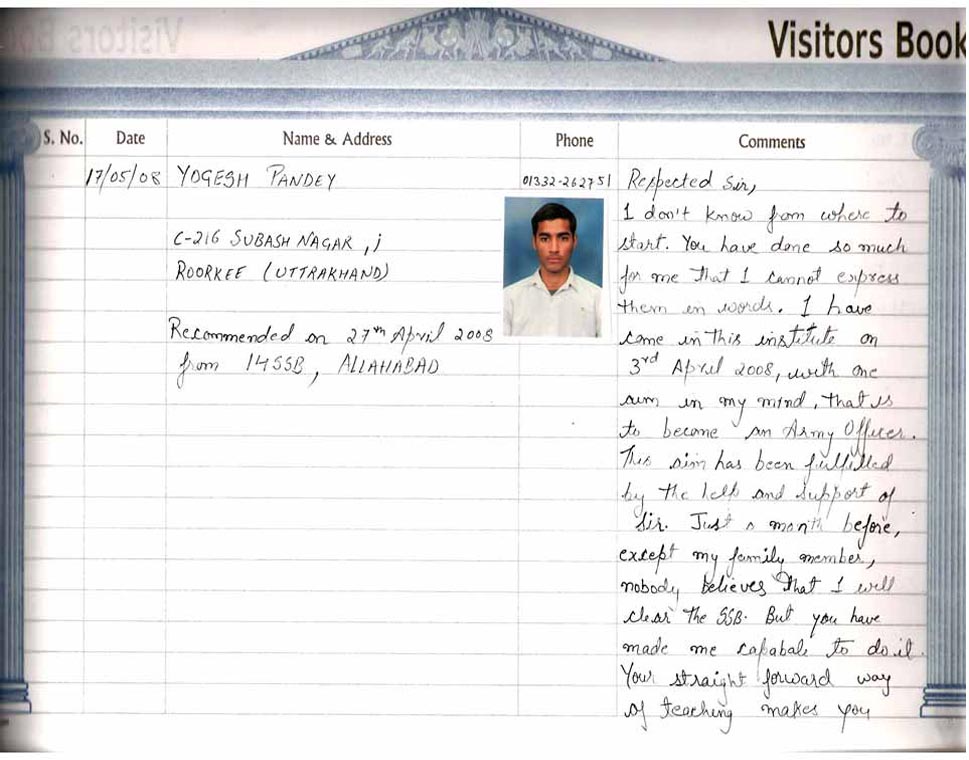 Visitors Book
S. No.
Date
Name & Address
Phone
Comments
17/05/08
YOGESH PANDEY
C-216 SUBASH NAGAR,
ROORKEE (UTTRAKHAND)
Recommended on 27th April 2008
from 14SSB, ALLAHABAD
01332-262751
Respected Sir,
I don't know from where to
start. You have done so much
for me that I cannot express
them in words. I have
come in this institute on
3rd April 2008, with one
aim in my mind, that is
to become an Army Officer.
This aim has been fulfilled
by the help and support of
Sir. Just a month before,
except my family member,
nobody believes that I will
clear the SSB. But you have
made me capabale to do it.
Your straight forward way
of teaching makes you